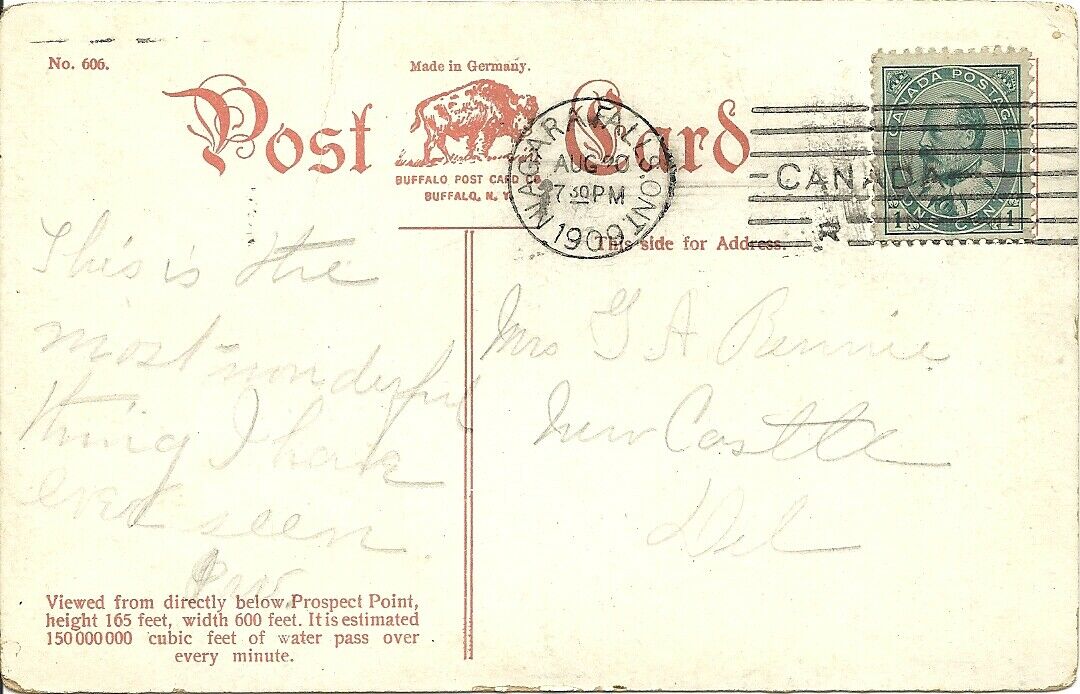 No. 606.
Made in Germany.
Post Card
BUFFALO POST CARD CO.
BUFFALO, N. Y.
NIAGARA FALLS. ONT
AUG 20
7 30 PM
1909
CANADA
CANADA POSTAGE
1 ONE CENT 1
This side for Address.
This is the
most wonderful
thing I have
ever seen
Mrs G A Bennie
New Castle
Del
Viewed from directly below Prospect Point,
height 165 feet, width 600 feet. It is estimated
150 000 000 cubic feet of water pass over
every minute.